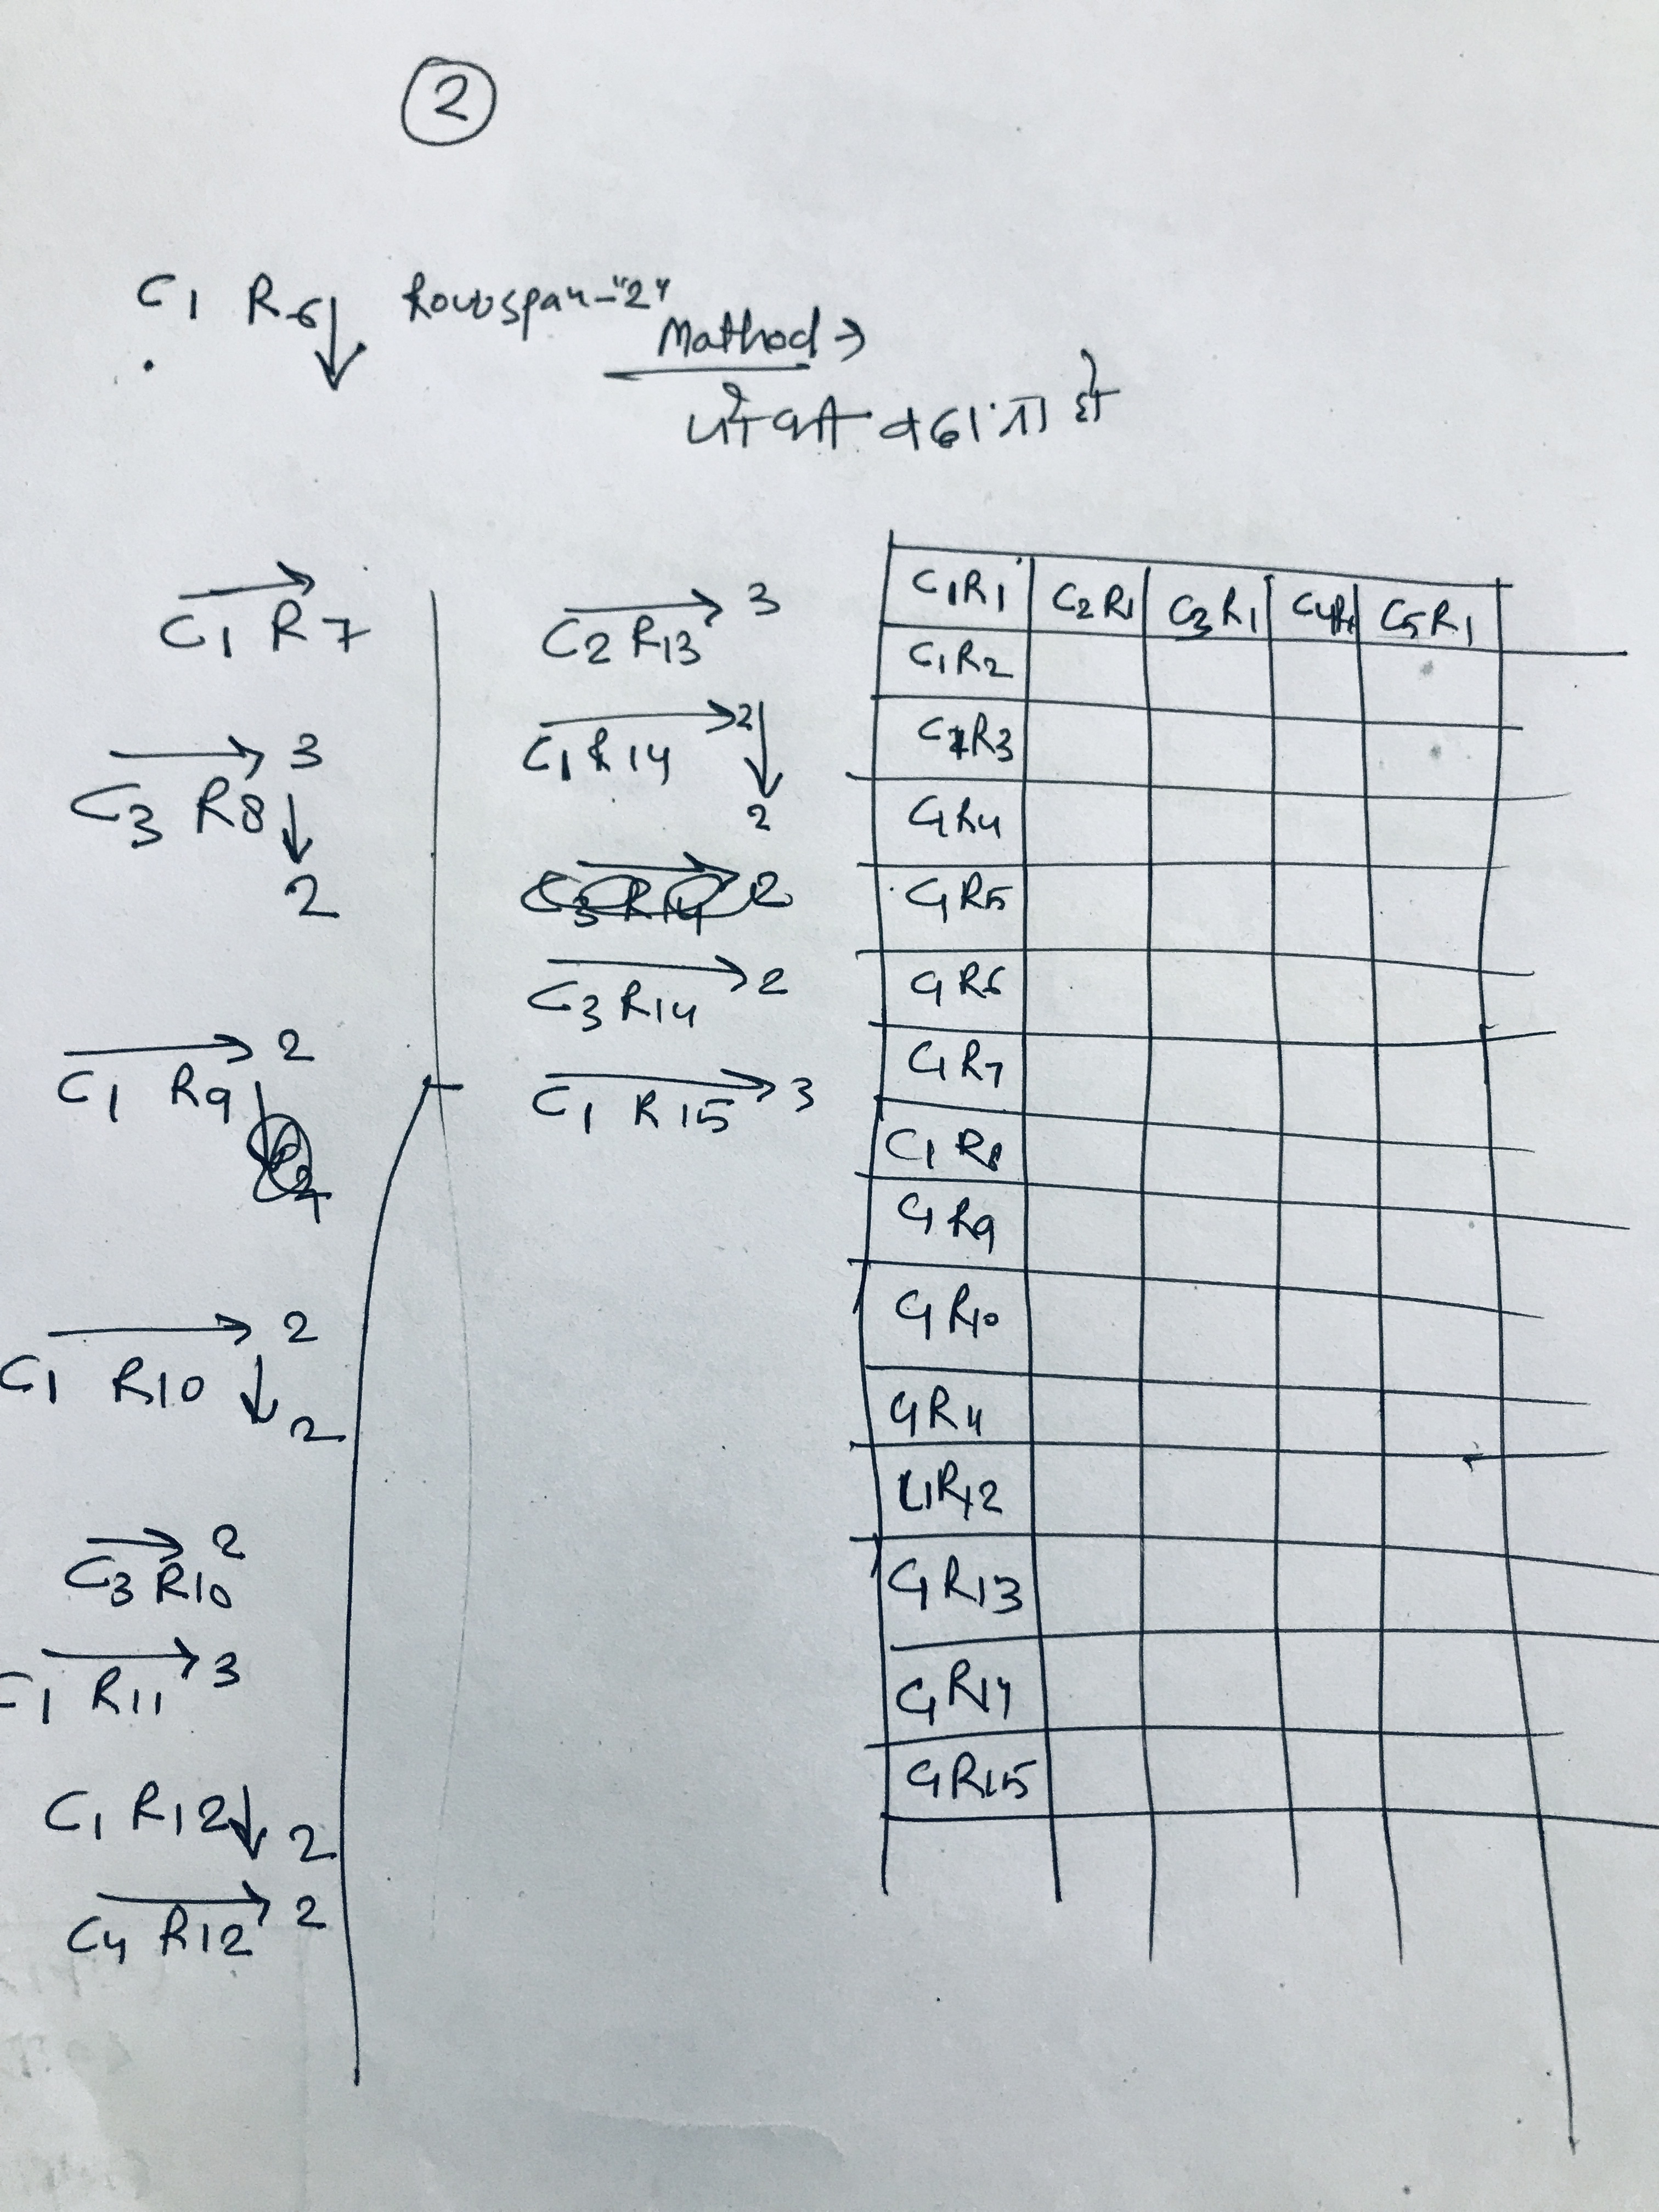 2
C1 R6↓ Rowspan-"2"
Mathod →
C1 R7 →
C3 R8 → 3 ↓ 2
C1 R9 → 2
C1 R10 → 2 ↓ 2
C3 R10 → 2
C1 R11 → 3
C1 R12 ↓ 2
C4 R12 → 2
C2 R13 → 3
C1 R14 → 2 ↓ 2
C3 R14 → 2
C1 R15 → 3
C1R1 C2R1 C3R1 C4R1 C5R1
C1R2
C1R3
C1R4
C1R5
C1R6
C1R7
C1R8
C1R9
C1R10
C1R11
C1R12
C1R13
C1R14
C1R15